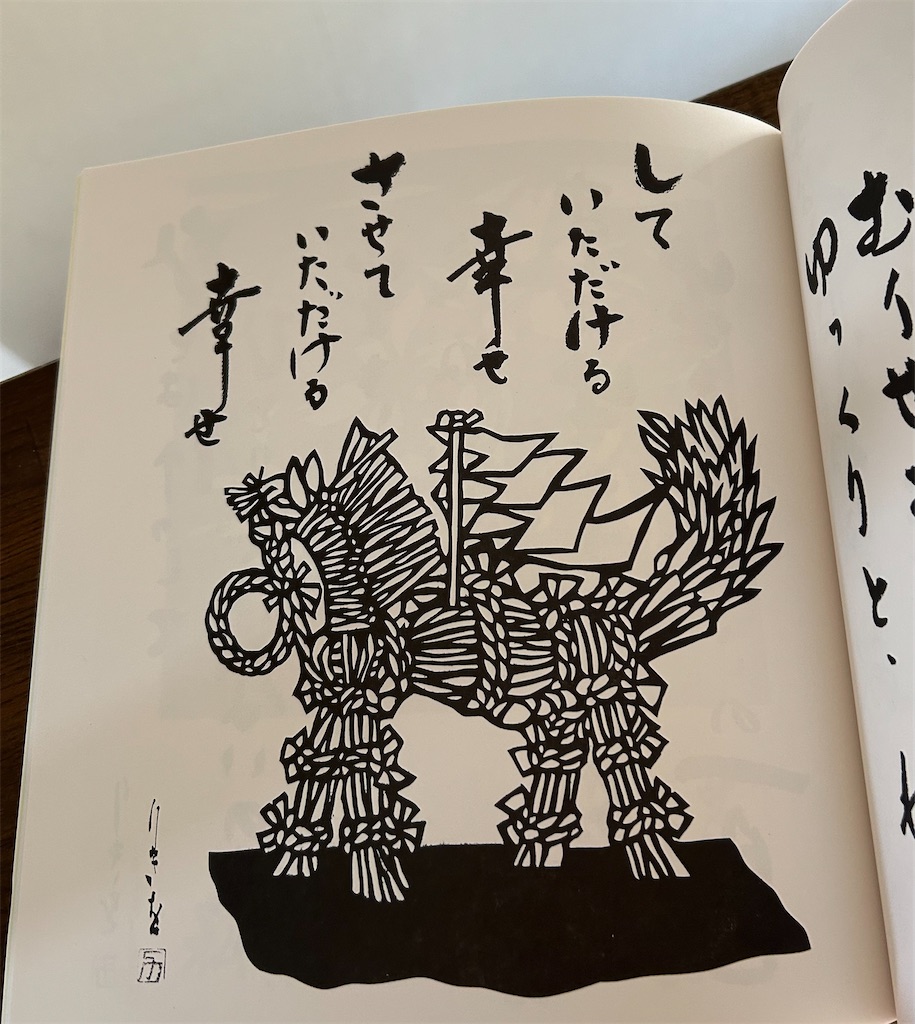 むりせず
ゆっくりと、
して
いただける
幸せ
させて
いただける
幸せ